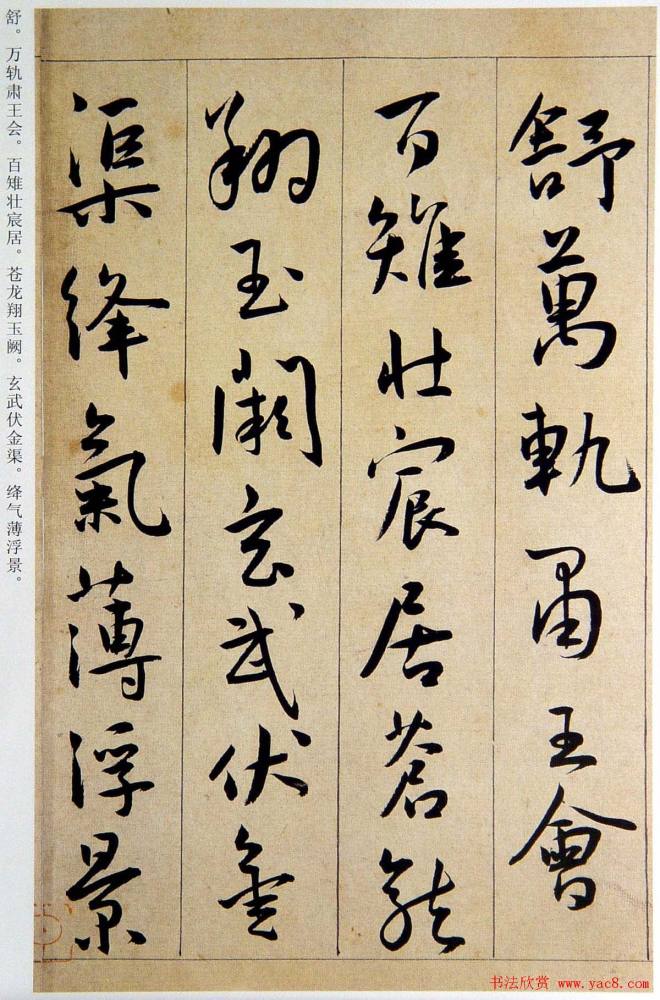 舒萬軌肅王會
百雉壯宸居蒼龍
翔玉闕玄武伏金
渠絳氣薄浮景
舒。万轨肃王会。百雉壮宸居。苍龙翔玉阙。玄武伏金渠。绛气薄浮景。
书法欣赏 www.yac8.com